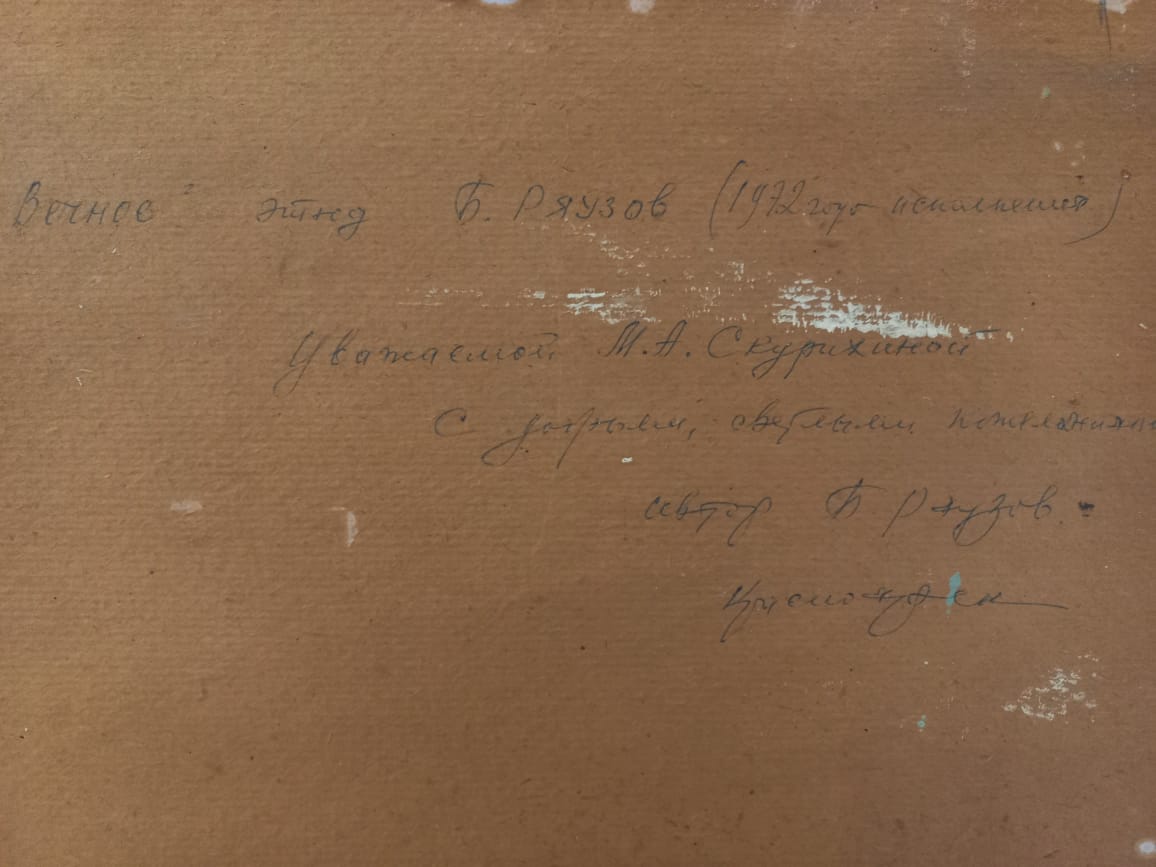 Вечное" этюд Б. Ряузов (1972 года исполнения)
Уважаемой М.А. Скурихиной
С добрыми, светлыми пожеланиями
автор Б. Ряузов.
Красноярск